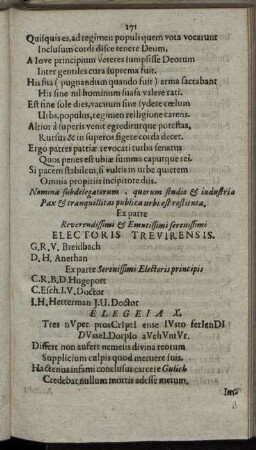 171
Quisquis es, ad regimen populi quem vota vocarunt
Inclusum cordi disce tenere Deum,
A Iove principium veteres sumpsisse Deorum
Inter gentiles cura suprema fuit.
His sita ( pugnandum quando fuit ) arma sacrabant
His sine nil hominum suasa valere rati.
Est sine sole dies, vacuum sine sydere cœlum
Urbs, populus, regimen relligione carens.
Altior à superis venit egrediturque potestas,
Rursus & in superos figere corda decet.
Ergo patres patriæ revocati turba senatus
Quos penes est ubiæ summa caputque rei.
Si pacem stabilem, si vultis in urbe quietem
Omnia propitiis incipitote diis.
Nomina subdelegatorum . quorum studio & industria
Pax & tranquillitas publica urbi est restituta,
Ex parte
Reverendissimi & Eminentissimi serenissimi
ELECTORIS TREVIRENSIS.
G, R, V, Breidbach
D, H, Anethan
Ex parte Serenissimi Electoris principis
C. R, B, D Hugepoet
C. Esch. I. V, Doctor
I, H, Hetterman J. U. Doctor
ELEGEIA X.
Tres nVper prosCrIptI ense IVsto ferIenDI
DVsseLDorpIo aVehVntVr.
Differt non aufert nemesis divina reorum
Supplicium culpis quod meruere suis.
Hactenus infami conclusus carcere Gulich
Credebat nullum mortis adesse metum,
Im-